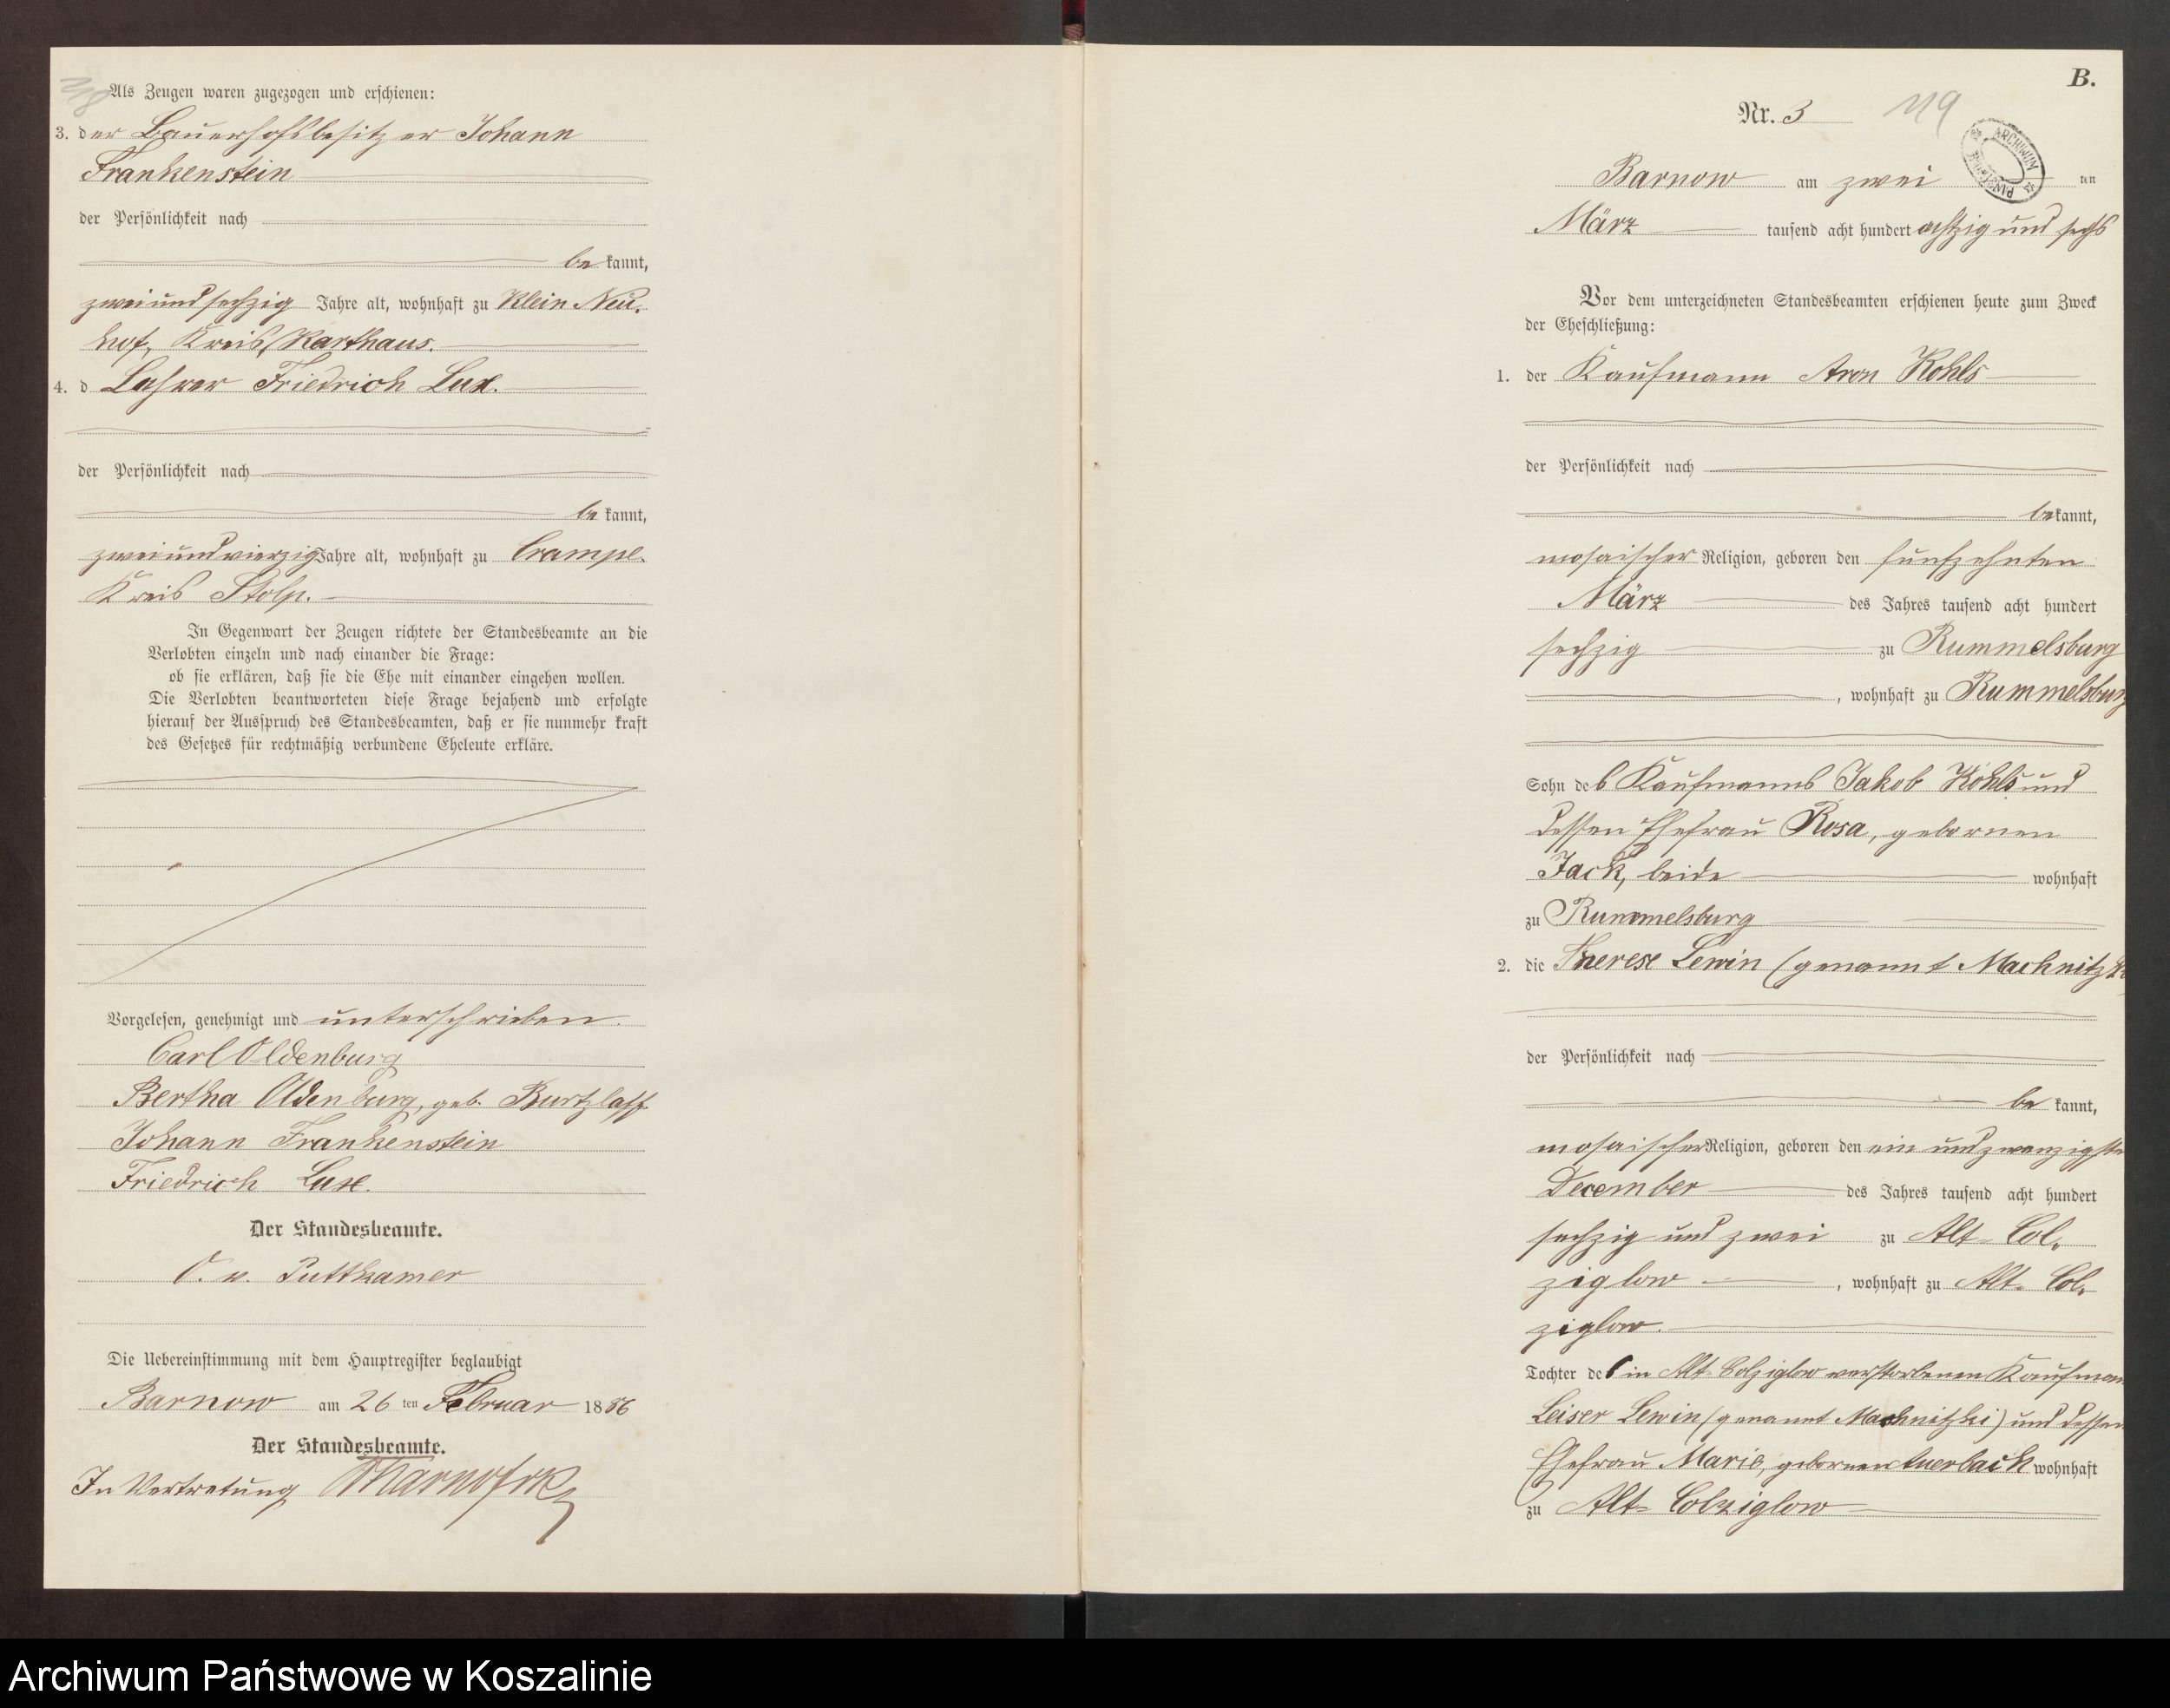 118
Als Zeugen waren zugezogen und erschienen:
3. der Bauerhofsbesitzer Johann
Frankenstein
der Persönlichkeit nach
be kannt,
zweiundsechzig Jahre alt, wohnhaft zu Klein Neu-
hof, Kreis Karthaus.
4. d Lehrer Friedrich Lux.
der Persönlichkeit nach
be kannt,
zweiundvierzig Jahre alt, wohnhaft zu Crampe.
Kreis Stolp.
In Gegenwart der Zeugen richtete der Standesbeamte an die
Verlobten einzeln und nach einander die Frage:
ob sie erklären, daß sie die Ehe mit einander eingehen wollen.
Die Verlobten beantworteten diese Frage bejahend und erfolgte
hierauf der Ausspruch des Standesbeamten, daß er sie nunmehr kraft
des Gesetzes für rechtmäßig verbundene Eheleute erkläre.
Vorgelesen, genehmigt und unterschrieben.
Carl Oldenburg
Bertha Oldenburg, geb. Burtzlaff
Johann Frankenstein
Friedrich Lux.
Der Standesbeamte.
O. v. Puttkamer
Die Uebereinstimmung mit dem Hauptregister beglaubigt
Barnow am 26 ten Februar 1886
Der Standesbeamte.
In Vertretung
B.
Nr. 3 119
ARCHIWUM
Barnow am zwei ten
März tausend acht hundert achtzig und sechs
Vor dem unterzeichneten Standesbeamten erschienen heute zum Zweck
der Eheschließung:
1. der Kaufmann Aron Kohls
der Persönlichkeit nach
bekannt,
mosaischer Religion, geboren den fünfzehnten
März des Jahres tausend acht hundert
sechzig zu Rummelsburg
, wohnhaft zu Rummelsburg
Sohn des Kaufmanns Jakob Kohls und
dessen Ehefrau Rosa, gebornen
Jack, beide wohnhaft
zu Rummelsburg
2. die Therese Lewin (genannt Machnitzki
der Persönlichkeit nach
be kannt,
mosaischer Religion, geboren den ein und zwanzigsten
December des Jahres tausend acht hundert
sechzig und zwei zu Alt-Col-
ziglow , wohnhaft zu Alt-Col-
ziglow.
Tochter des in Alt-Colziglow verstorbenen Kaufmann
Leiser Lewin (genannt Machnitzki) und dessen
Ehefrau Marie, gebornen Auerbach wohnhaft
zu Alt-Colziglow
Archiwum Państwowe w Koszalinie